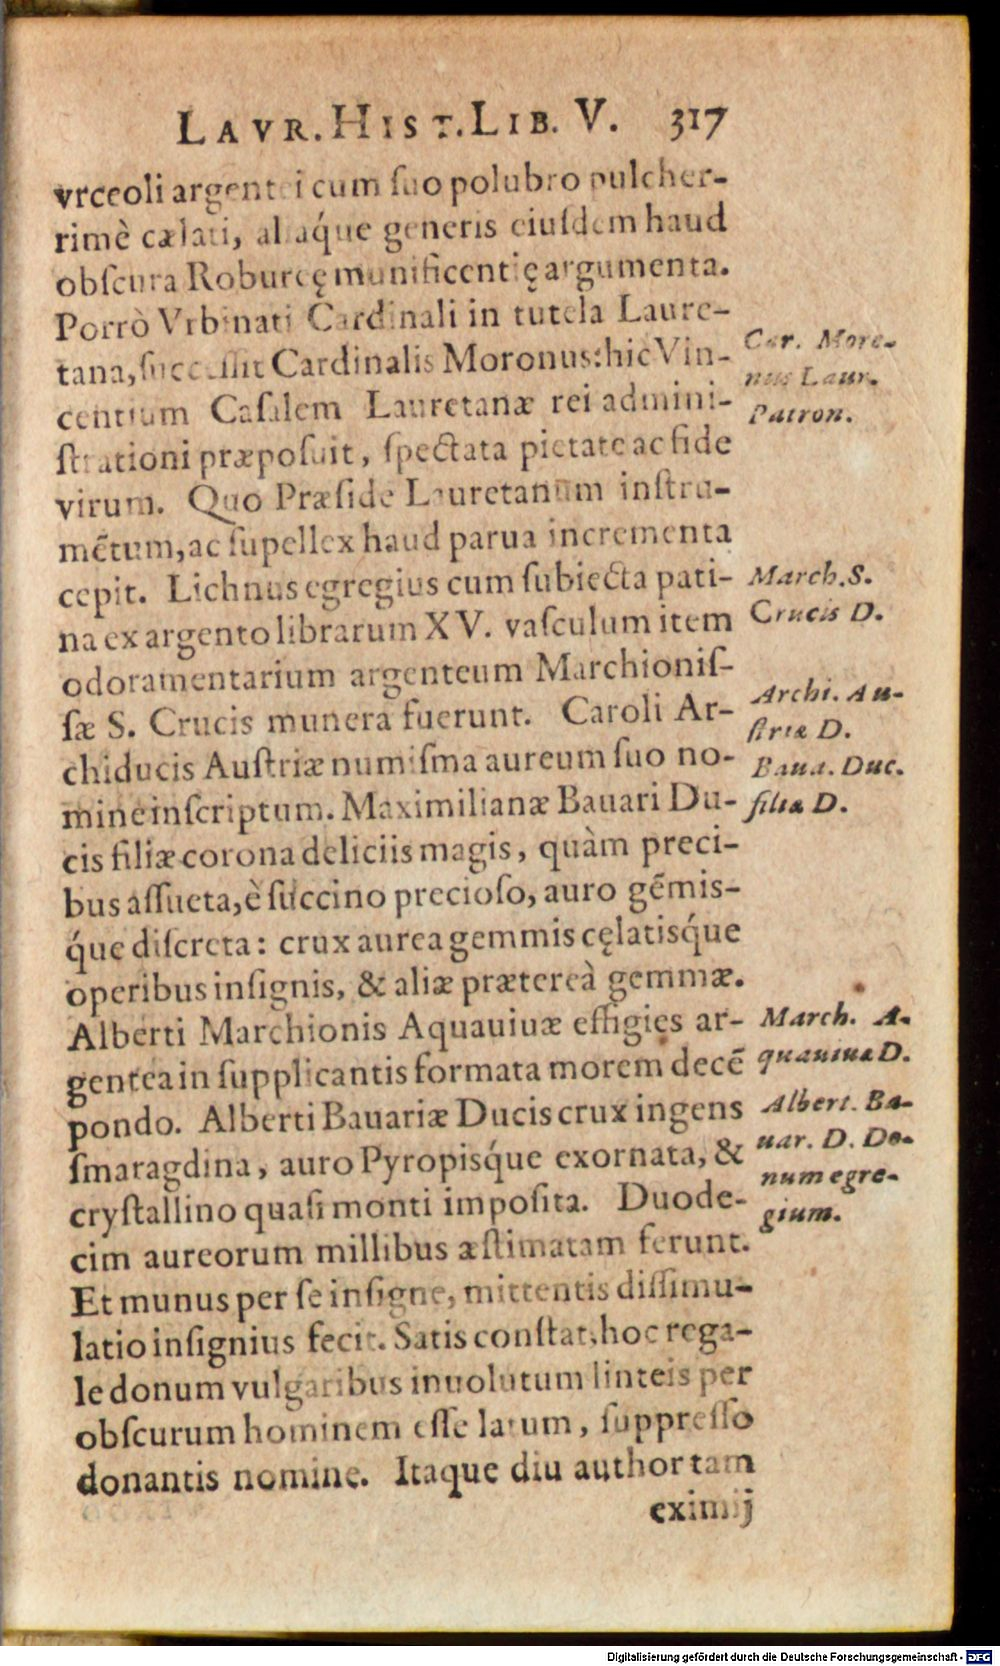 LAVR. HIST. LIB. V. 317
vrceoli argentei cum ſuo polubro pulcher-
rimè cælati, aliaq́ue generis eiuſdem haud
obſcura Robureę munificentię argumenta.
Porrò Vrbinati Cardinali in tutela Laure-
tana, ſucceſſit Cardinalis Moronus: hic Vin-
Car. Moro-
nus Laur.
Patron.
centium Caſalem Lauretanæ rei admini-
ſtrationi præpoſuit, ſpectata pietate ac fide
virum. Quo Præſide Lauretanum inſtru-
mẽtum, ac ſupellex haud parua incrementa
cepit. Lichnus egregius cum ſubiecta pati-
March. S.
Crucis D.
na ex argento librarum XV. vaſculum item
odoramentarium argenteum Marchioniſ-
ſæ S. Crucis munera fuerunt. Caroli Ar-
Archi. Au-
ſtriæ D.
chiducis Auſtriæ numiſma aureum ſuo no-
Baua. Duc.
filiæ D.
mine inſcriptum. Maximilianæ Bauari Du-
cis filiæ corona deliciis magis, quàm preci-
bus aſſueta, è ſuccino precioſo, auro gẽmis-
q́ue diſcreta: crux aurea gemmis cęlatisq́ue
operibus inſignis, & aliæ prætereà gemmæ.
Alberti Marchionis Aquauiuæ effigies ar-
March. A-
quauiuæ D.
gentea in ſupplicantis formata morem decẽ
pondo. Alberti Bauariæ Ducis crux ingens
Albert. Ba-
uar. D. Do-
num egre-
gium.
ſmaragdina, auro Pyropisq́ue exornata, &
cryſtallino quaſi monti impoſita. Duode-
cim aureorum millibus æſtimatam ferunt.
Et munus per ſe inſigne, mittentis diſſimu-
latio inſignius fecit. Satis conſtat, hoc rega-
le donum vulgaribus inuolutum linteis per
obſcurum hominem eſſe latum, ſuppreſſo
donantis nomine. Itaque diu author tam
eximij
Digitalisierung gefördert durch die Deutsche Forschungsgemeinschaft - DFG